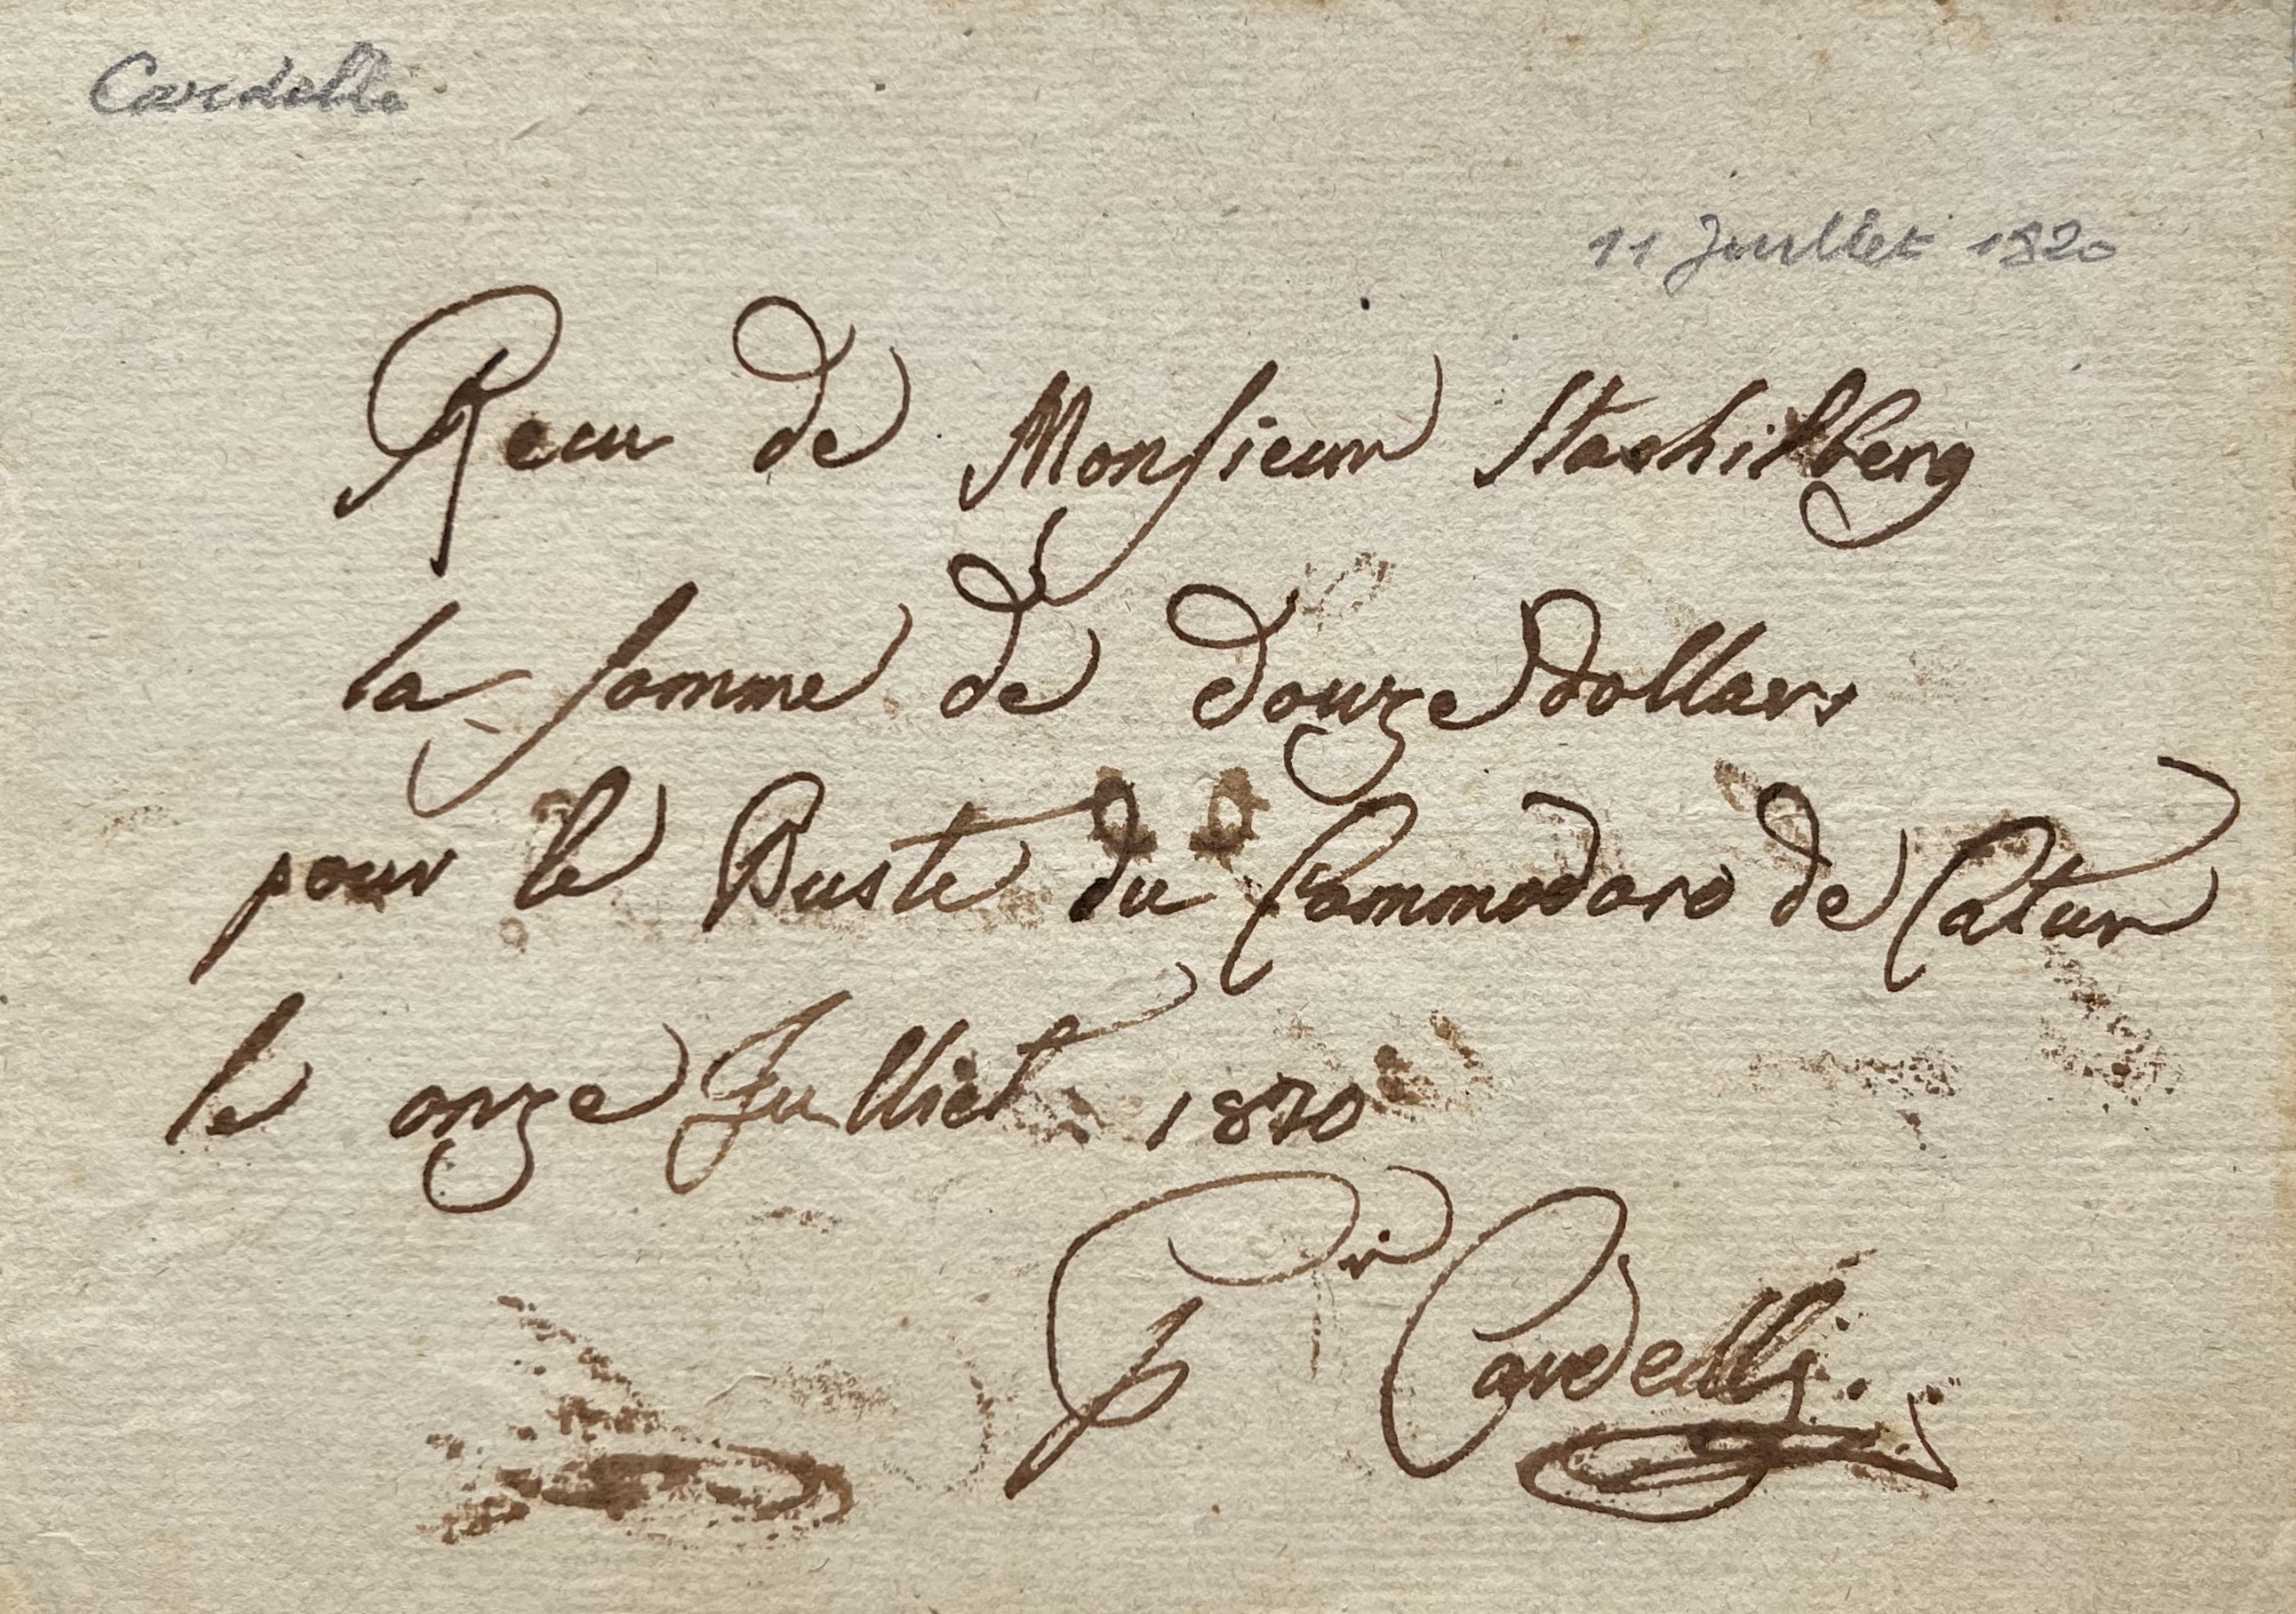 Cardelli
11 Juillet 1820
Recu de Monsieur Stachilberg
la somme de douze dollars
pour le Buste du Commodore de Catur
le onze Julliet 1820
Pr Cardelli.